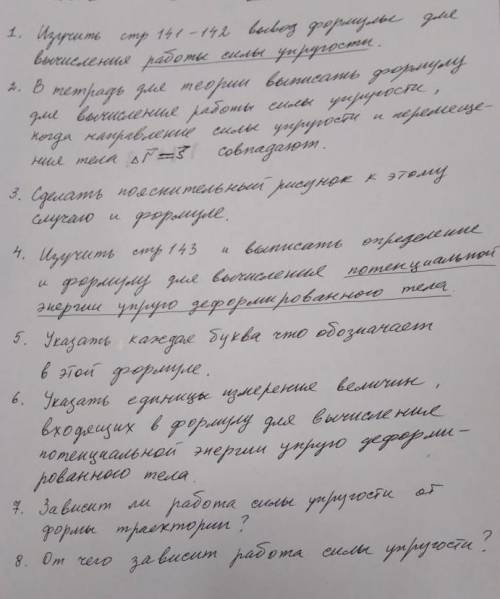 1. Изучить стр 141-142 вывод формулы для
вычисления работы силы упругости.
2. В тетрадь для теории выписать формулу
для вычисления работы силы упругости,
когда направление силы упругости и перемеще-
ния тела Δr⃗ = S⃗ совпадают.
3. Сделать пояснительный рисунок к этому
случаю и формуле.
4. Изучить стр 143 и выписать определение
и формулу для вычисления потенциальной
энергии упруго деформированного тела.
5. Указать каждая буква что обозначает
в этой формуле.
6. Указать единицы измерения величин,
входящих в формулу для вычисления
потенциальной энергии упруго деформи-
рованного тела.
7. Зависит ли работа силы упругости от
формы траектории?
8. От чего зависит работа силы упругости?